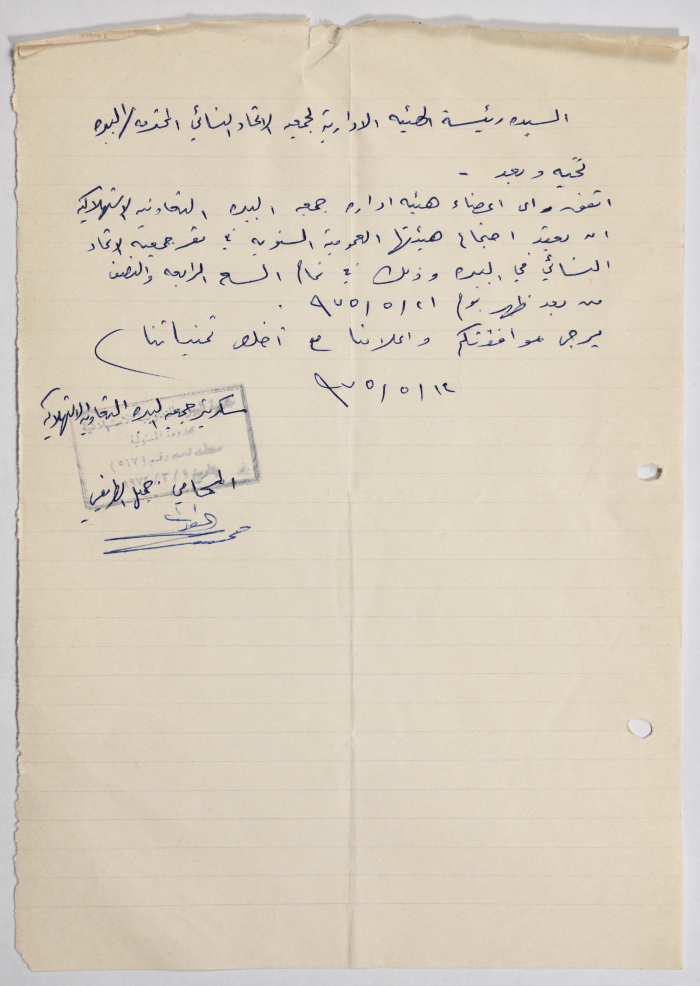 السيده رئيسة الهيئه الادارية لجمعيه الاتحاد النسائي المحترمه / البيره
تحيه وبعد -
اتفق رأي اعضاء هيئه اداره جمعيه البيره التعاونيه الاستهلاكية
ان يعقد اجتماع هيئتها العمومية السنويه في مقر جمعيه الاتحاد
النسائي في البيره وذلك في تمام الساعه الرابعه والنصف
من بعد ظهر يوم ٢١ / ٥ / ٩٧٥ .
يرجى موافقتكم واعلامنا مع أخلص تمنياتنا
١٢ / ٥ / ٩٧٥
سكرتير جمعيه البيره التعاونيه الاستهلاكية
المحامي جميل الطريفي